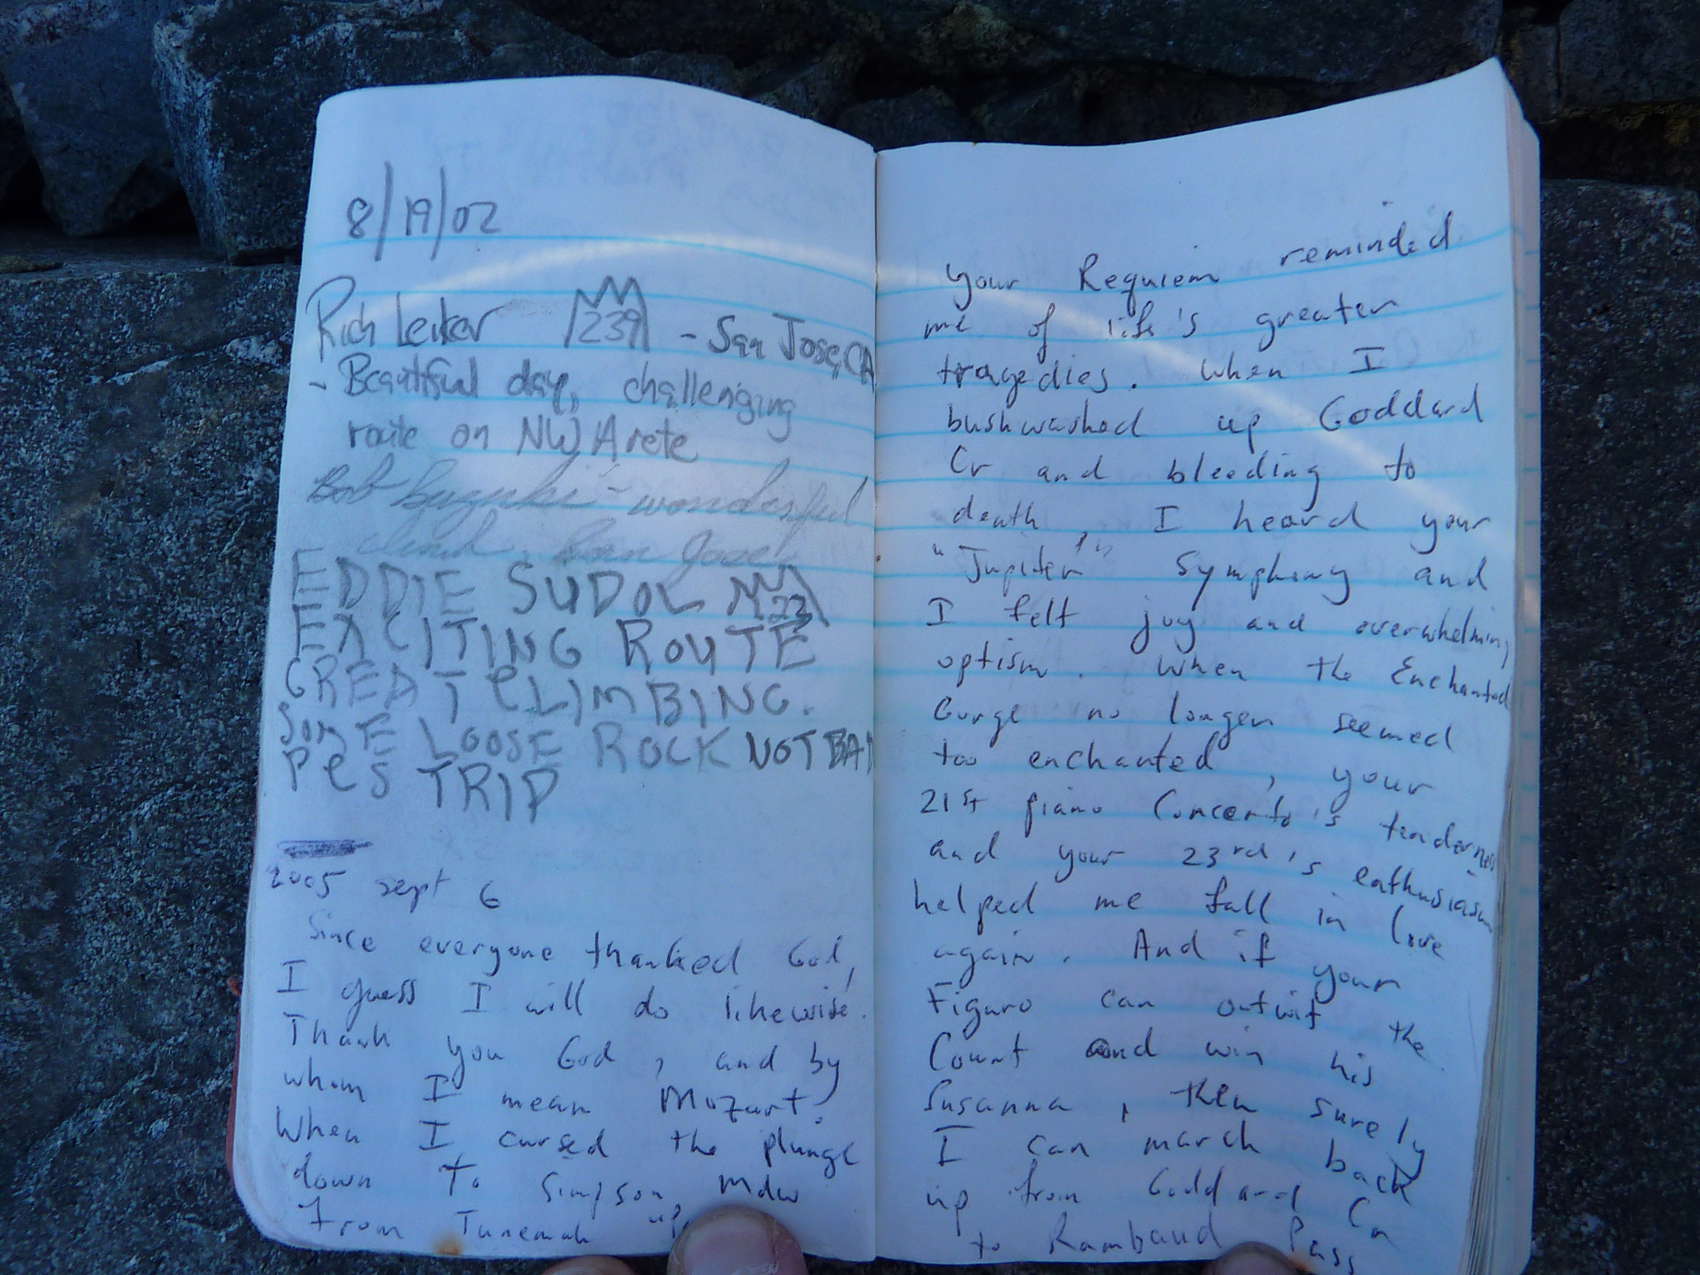 8/19/02
Rich Leiker 239 - San Jose, CA
- Beautiful day, challenging
route on NW Arete
Bob Suzuki - wonderful
climb, San Jose
EDDIE SUDOL 22
EXCITING ROUTE
GREAT CLIMBING.
SOME LOOSE ROCK NOT BAD
PCS TRIP
2005 sept 6
Since everyone thanked God,
I guess I will do likewise.
Thank you God, and by
whom I mean Mozart.
When I cursed the plunge
down to Simpson Mdw
from Tunemah
your Requiem reminded
me of life's greater
tragedies. When I
bushwashed up Goddard
Cr and bleeding to
death, I heard your
"Jupiter" Symphony and
I felt joy and overwhelming
optism. When the Enchanted
Gorge no longer seemed
too enchanted, your
21st piano Concerto's tenderness
and your 23rd's enthusiasm
helped me fall in love
again. And if your
Figaro can outwit the
Count and win his
Susanna, then surely
I can march back
up from Goddard Cr
to Rambaud Pass